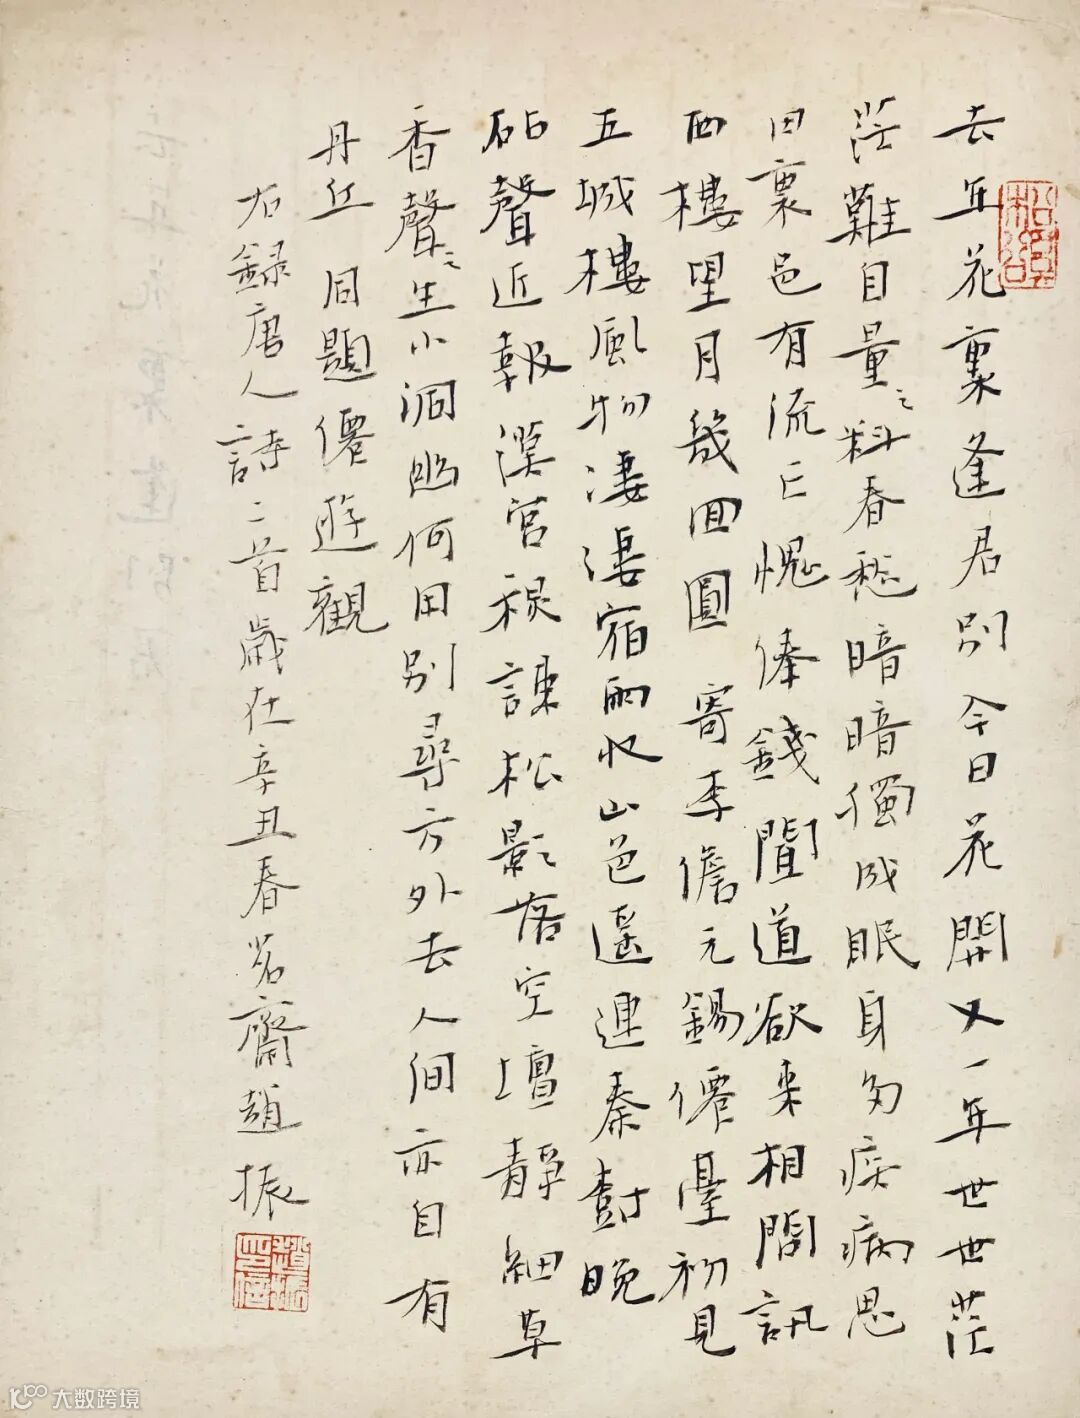 去年花裏逢君别今日花開又一年世世茫
茫難自量〻料春愁暗暗獨成眠身多疾病思
田裏邑有流亡愧俸錢聞道欲来相問訊
西樓望月幾回圓 寄李儋元錫 僊臺初見
五城樓風物淒淒宿雨收山色遥連秦樹晚
砧聲近報漢宫秋疎松影落空壇靜細草
香聲〻生小洞幽何用别尋方外去人间亦自有
丹丘 同題僊遊觀
右録唐人詩二首歲在辛丑春茗齋趙振
趙振印信
大数跨境